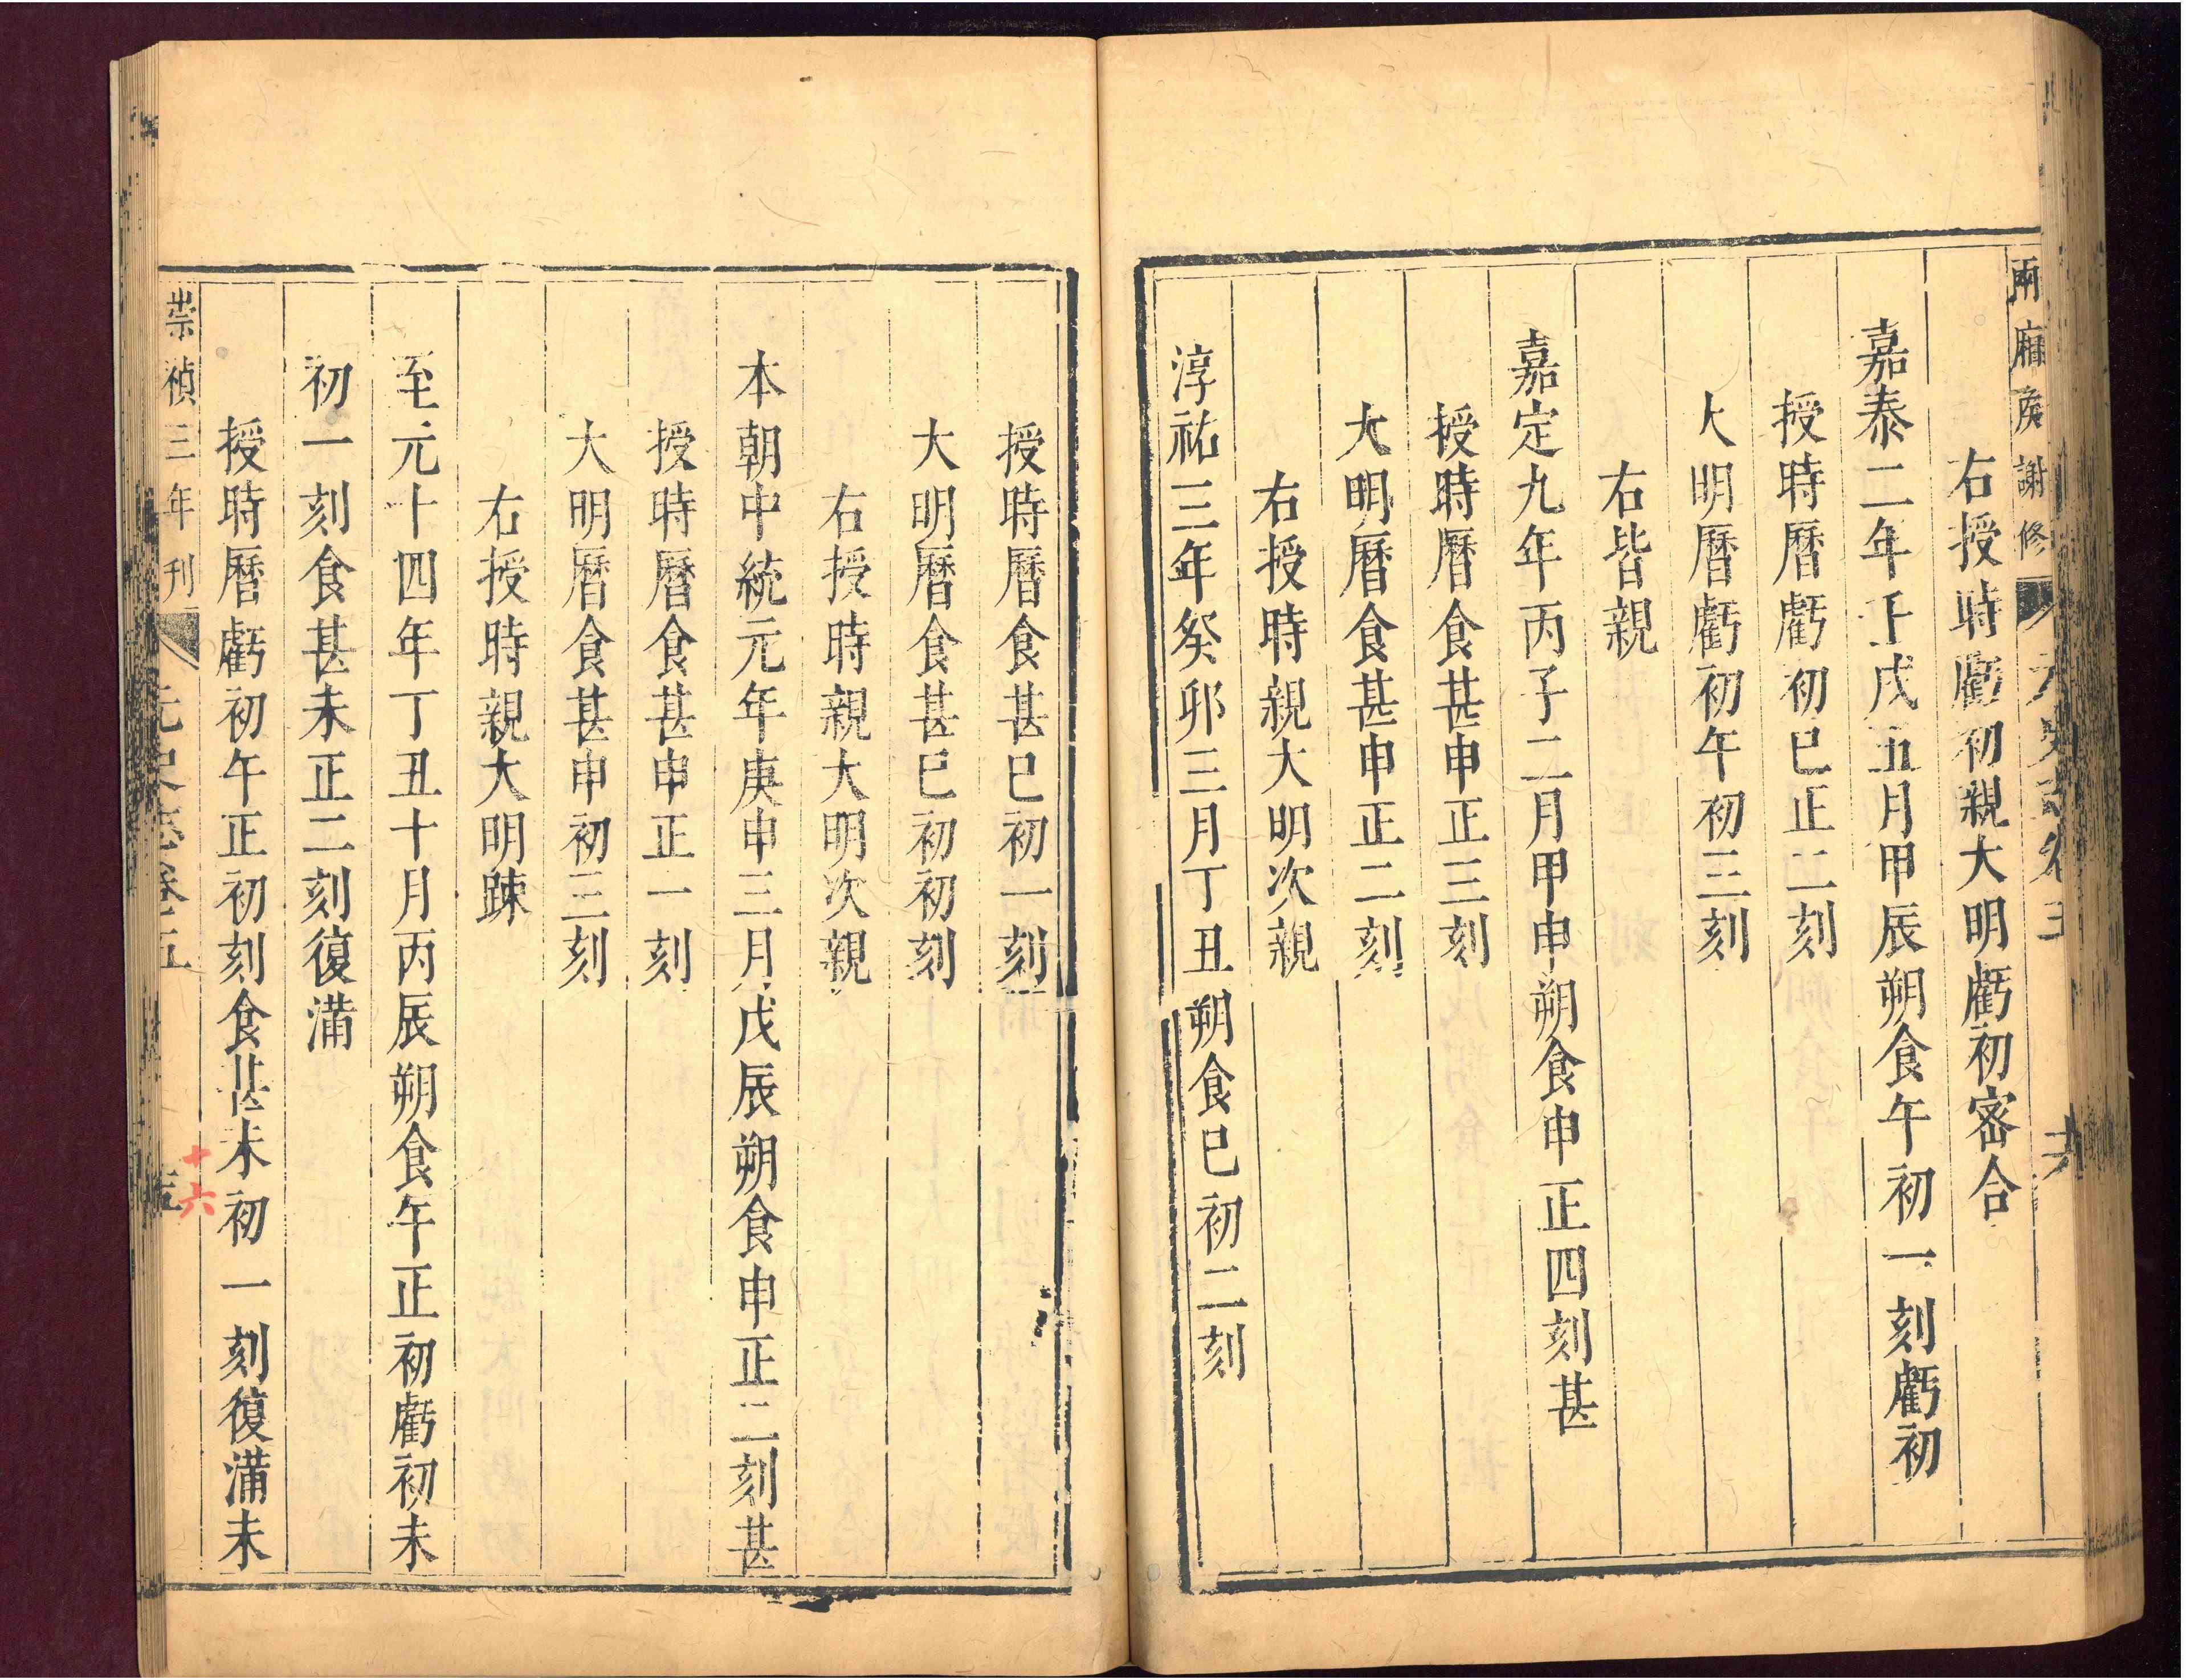 兩廂侯謝修
右授時虧初親大明虧初密合
嘉泰二年壬戌五月甲辰朔食午初一刻虧初
授時曆虧初巳正二刻
大明曆虧初午初三刻
右皆親
嘉定九年丙子二月甲申朔食申正四刻甚
授時曆食甚申正三刻
大明曆食甚申正二刻
右授時親大明次親
淳祐三年癸卯三月丁丑朔食巳初二刻
授時曆食甚巳初一刻
大明曆食甚巳初初刻
右授時親大明次親
本朝中統元年庚申三月戊辰朔食申正二刻甚
授時曆食甚申正一刻
大明曆食甚申初三刻
右授時親大明踈
至元十四年丁丑十月丙辰朔食午正初虧初未
初一刻食甚未正二刻復滿
授時曆虧初午正初刻食甚未初一刻復滿未
崇禎三年刊 元史志卷五
十六